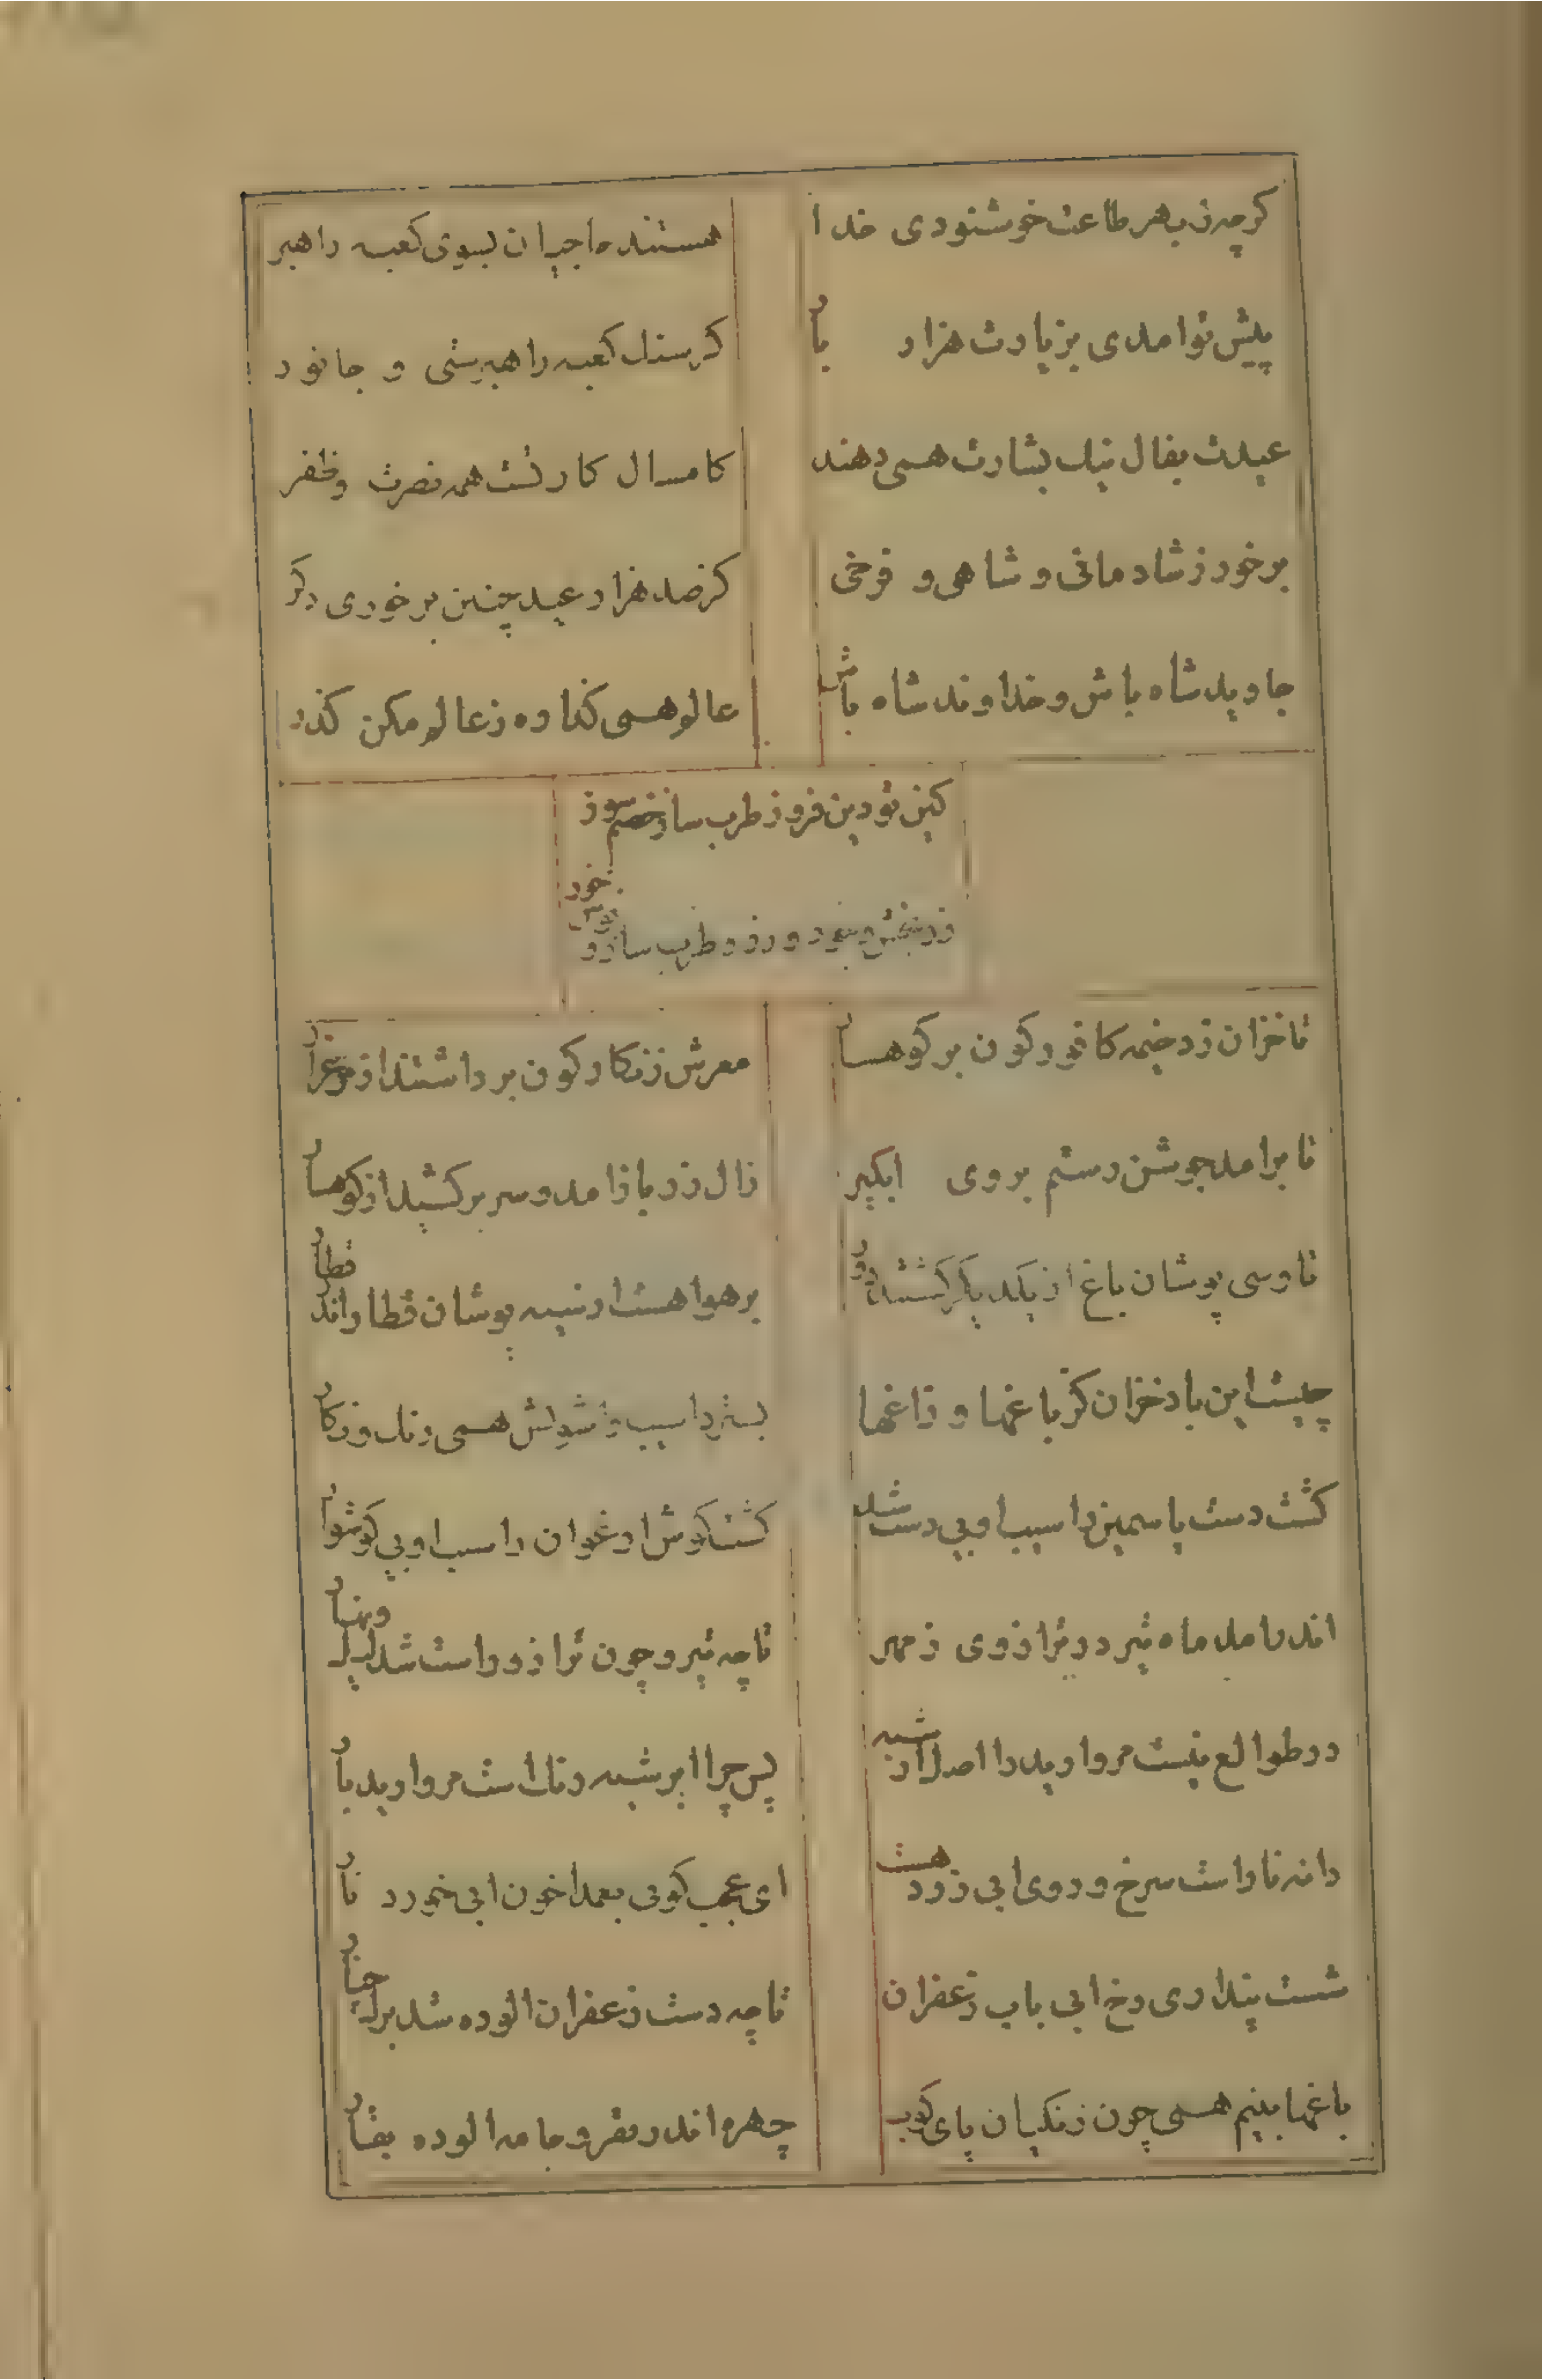 کرچه ز بهر طاعت خوشنودی خدا
هستند حاجیان بسوی کعبه راهبر
پیش تو امدی بزیارت هزار بار
کر سنک کعبه راهبرستی و جانور
عیدت بفال نیک بشارت همی دهند
کامسال کار تست همه نصرت وظفر
برخور ز شادمانی و شاهی و فرخی
کز صد هزار عید چنین برخوری دکر
جاوید شاه باش و خداوند شاه باش
عالم همی کذاره ز عالم مکن کذر
کین توز دین فروز طرب ساز خصم سوز
زر بخش و می خور و رود و طرب ساز و
تا خزان زد خیمه کافور کون بر کوهسار
مفرش زنکار کون برداشتند از مرغزار
تا برامد جوشن رستم بروی ابکیر
زال زر باز امد و سر برکشید از کوهسار
تا وسی پوشان باغ از یکدیکر کشتند دور
بر هوا هست از سیه پوشان قطار اندر قطار
چیست این باد خزان کز باغها و راغها
بسترد اسیب و اشوبش همی رنک و نکار
کشت دست یاسمین زاسیب او بی دست بند
کشت کوش ارغوان زاسیب او بی کوشوار
اندرامد ماه تیر و در ترازوی ز مهر
تا چه تیر و چون ترازو راست شد لیل و نهار
در طوالع نیست مروارید را اصل از شبه
پس چرا ابر شبه رنک است مروارید بار
دانه نار است سرخ و روی ابی زرد هست
ای عجب کویی بعمدا خون ابی خورد نار
شست پنداری رخ ابی باب زعفران
تا چه دست زعفران الوده شد برک چنار
باغها بینم همی چون زنکیان پای کوب
چهره اندوده بقیر و جامه الوده بقار